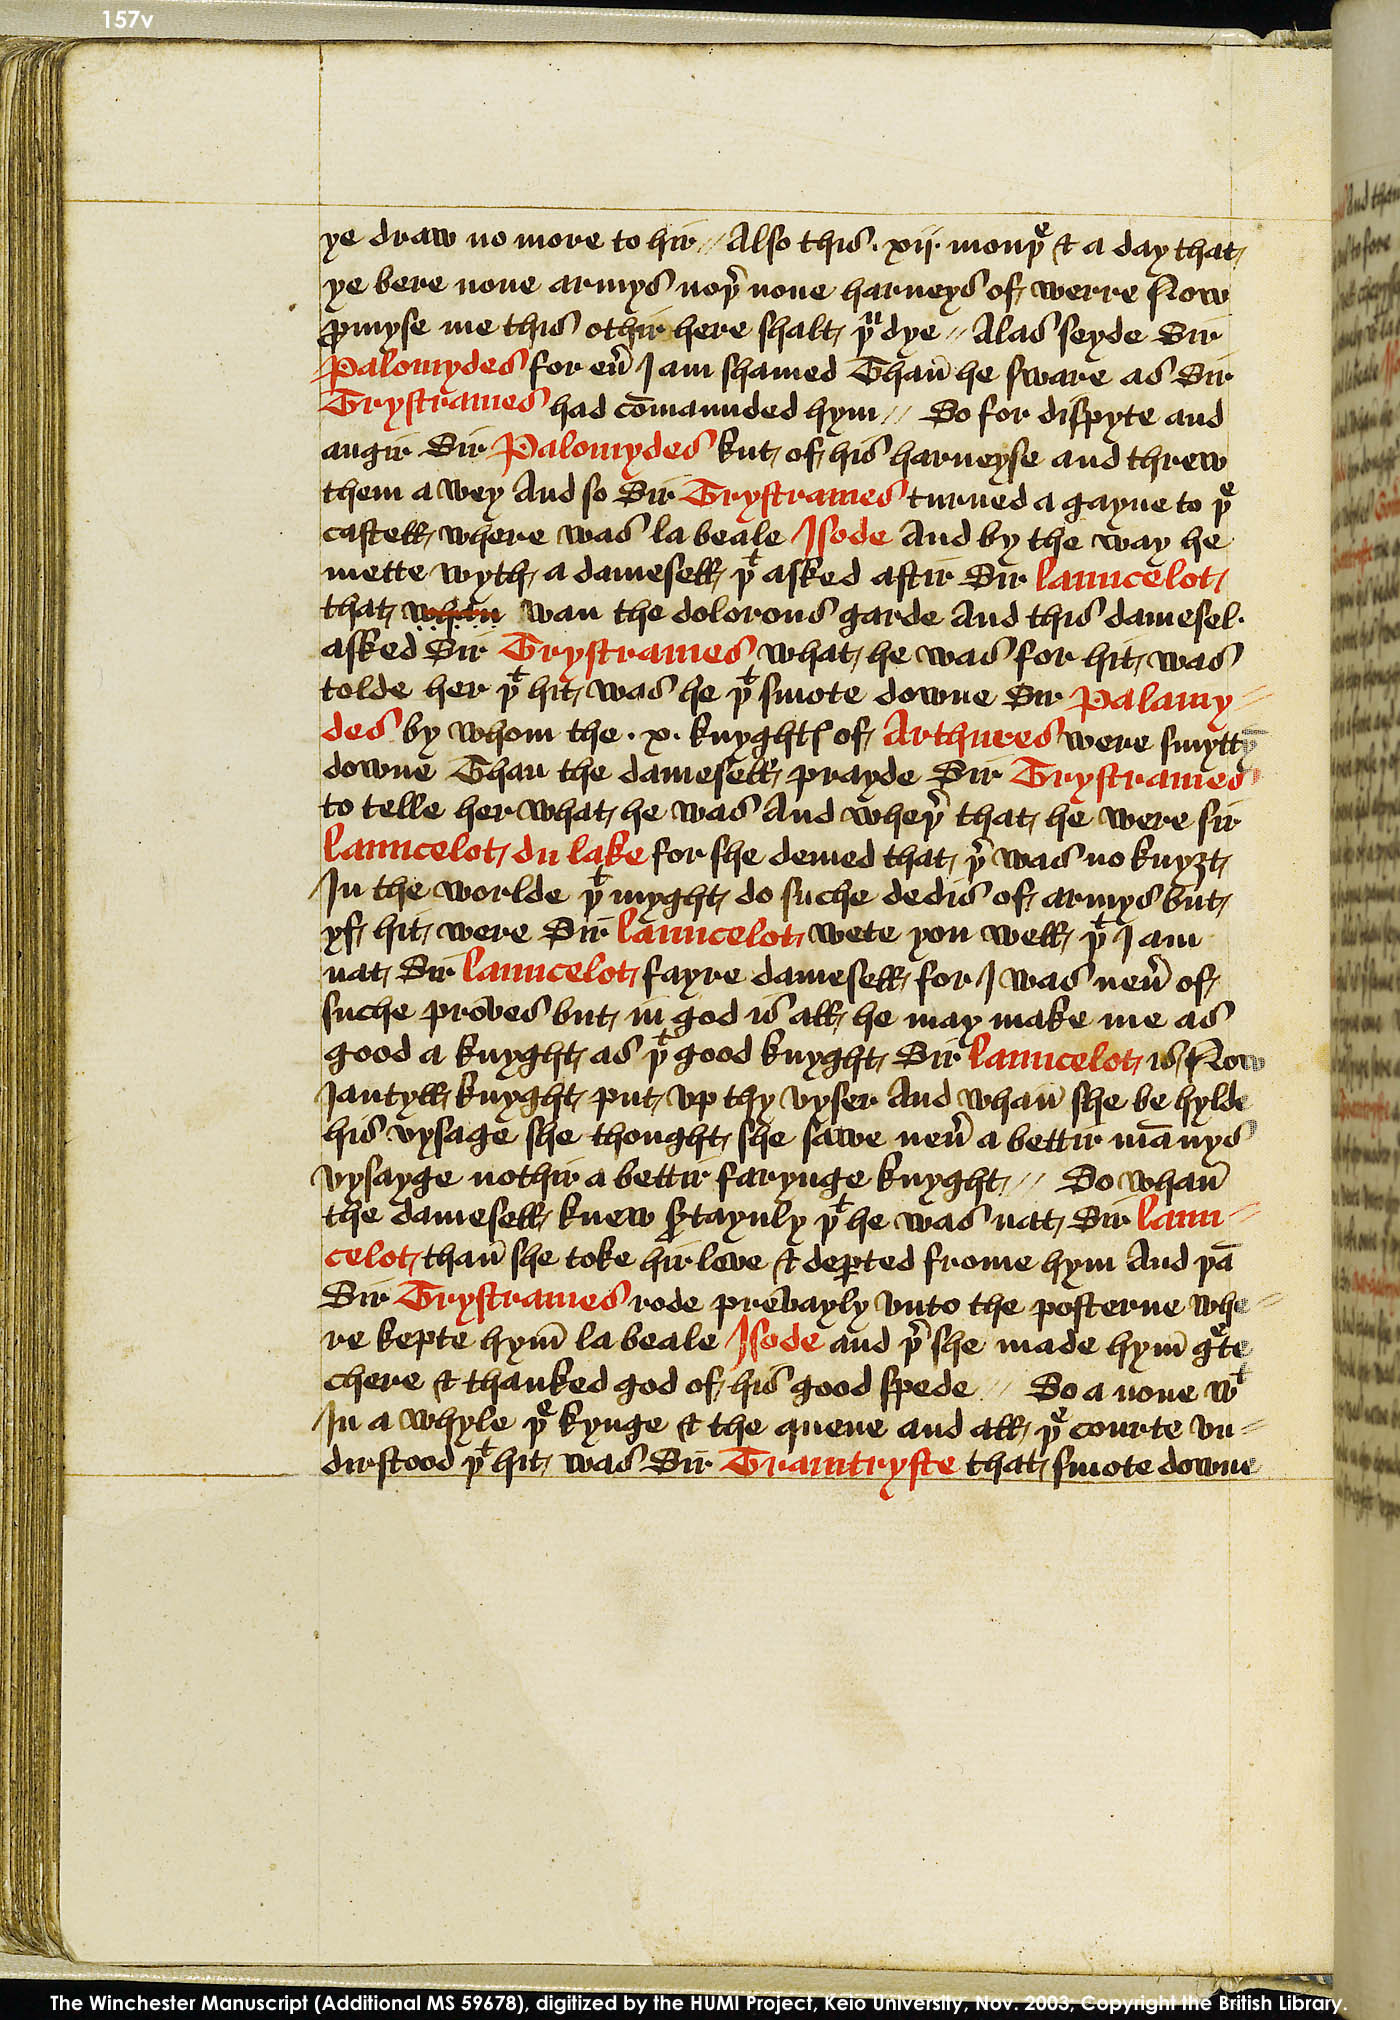 157v
ye draw no more to hir // Also this . xij . monþͤ & a day that
ye bere none armys noþ̉ none harneys of werre Now
ꝓmyse me this othir here shalt þᵘ dye // Alas seyde Sir
Palomydes for eủ I am shamed Than̄ he sware as Sir
Trystrames had cōmaunded hym // So for dispyte and
angir Sir Palomydes kut of his harneyse and threw
them a wey And so Sir Trystrames turned a gayne to þͤ
castell where was la beale Isode And by the way he
mette wyth a damesell þᵗ asked aftir Sir launcelot
that whan wan the dolorous garde And this damesel .
asked Sir Trystrames what he was for hit was
tolde her þᵗ hit was he þᵗ smote downe Sir Palamy=
des by whom the . x . knyghtꝭ of Arthures were smytty̅
downe Than the damesell prayde Sir Trystrames
to telle her what he was And wheþ̉ that he were sir
launcelot du lake for she demed that þ̉ was no knyȝt
In the worlde þᵗ myght do suche dedis of armys but
yf hit were Sir launcelot wete you well þᵗ I am
nat Sir launcelot fayre damesell for I was neủ of
suche prōves but in god is all he may make me as
good a knyght as þᵗ good knyght Sir launcelot is Now
Jantyll knyght put vp thy vyser And whan̄ she be hylde
his vysage she thought she sawe neủ a bettir mānys
vysayge nothir a bettir farynge knyght // So whan̄
the damesell knew s̉taynly þᵗ he was nat Sir laun=
celot than̄ she toke hir leve & deꝑted frome hym And þā
Sir Trystrames rode prēvayly vnto the posterne whe=
re kepte hym̄ la beale Isode and þ̉ she made hym̄ gͬte
chere & thanked god of his good spede // So a none wᵗ
In a whyle þͤ kynge & the quene and all þͤ courte vn=
dirstood þᵗ hit was Sir Tramtryste that smote downe
The Winchester Manuscript (Additional MS 59678), digitized by the HUMI Project, Keio University, Nov. 2003; Copyright the British Library.